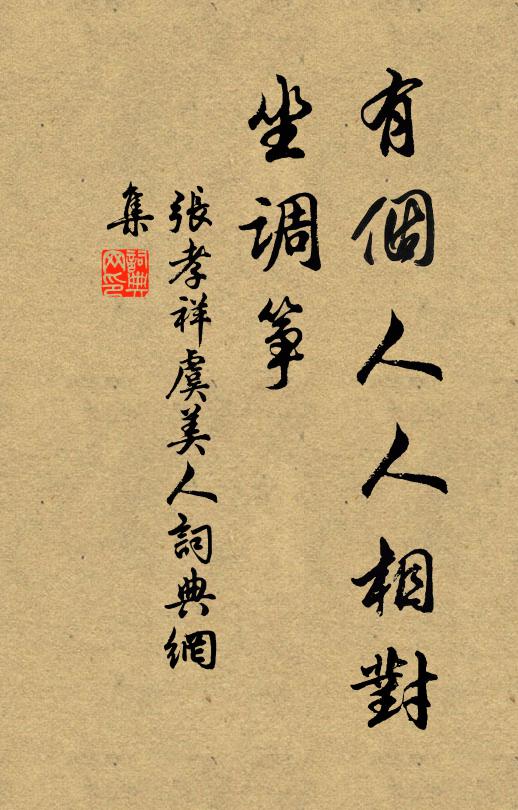 有個人人相對
坐調箏
張孝祥虞美人詞典網
集
詞典
网印